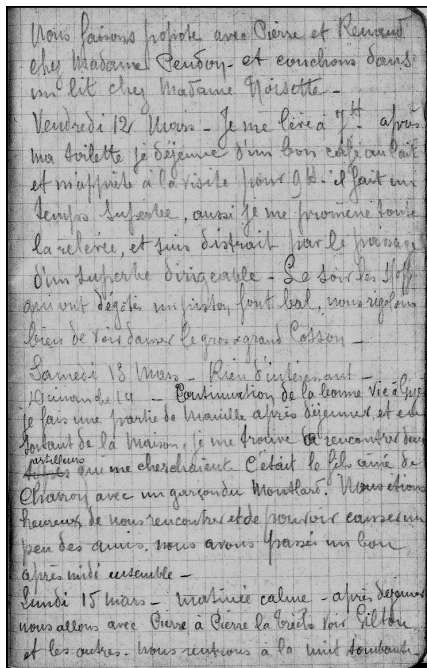 Nous faisons popote avec Pierre et Renaud
chez Madame Pendon - et couchons dans
un lit chez Madame Noisette -
Vendredi 12 Mars - Je me lève à 7h après
ma toilette je déjeune d'un bon café au lait
et m'apprête à la visite pour 9h. il fait un
temps superbe, aussi je me promène toute
la relevée, et suis distrait par le passage
d'un superbe dirigeable - Le soir les
qui ont dégotés un piston font bal, nous rigolons
bien de voir danser le gros grand Cosson -
Samedi 13 Mars - Rien d'intéressant -
Dimanche 14 - Continuation de la bonne vie à
je fais une partie de Manille après déjeuner et en
sortant de la maison, je me trouve à rencontrer deux
artilleurs
qui me cherchaient. C'était le fils ainé de
Charron avec un garçon du Montlard. Nous étions
heureux de nous rencontrer et de pouvoir causer un
peu des amis. nous avons passé un bon
après midi ensemble -
Lundi 15 mars - matinée calme - après déjeuner
nous allons avec Pierre à Pierre la voir Gilton
et les autres. nous rentrons à la nuit tombante -